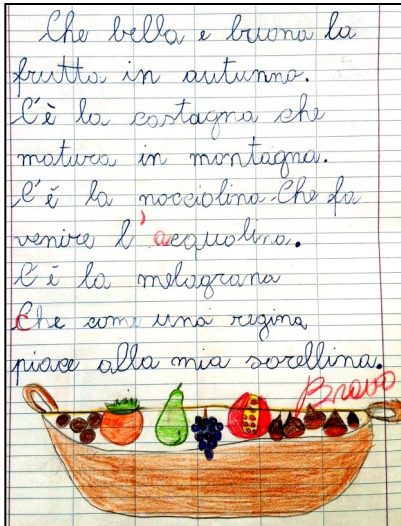 Che bella e buona la
frutta in autunno.
C'è la castagna che
matura in montagna.
C'è la nocciolina. Che fa
venire l'acquolina.
C'è la melagrana
Che come una regina
piace alla mia sorellina.
Bravo